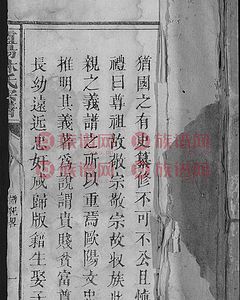 猶國之有史纂修不可不公且慎
禮曰尊祖故敬宗敬宗故收族此
親之義譜之所以重焉歐陽文史
推明其義蓉爲說謂貴賤貧富尊
長幼遠近忠奸咸歸版籍生娶子
林氏宗譜
族谱网